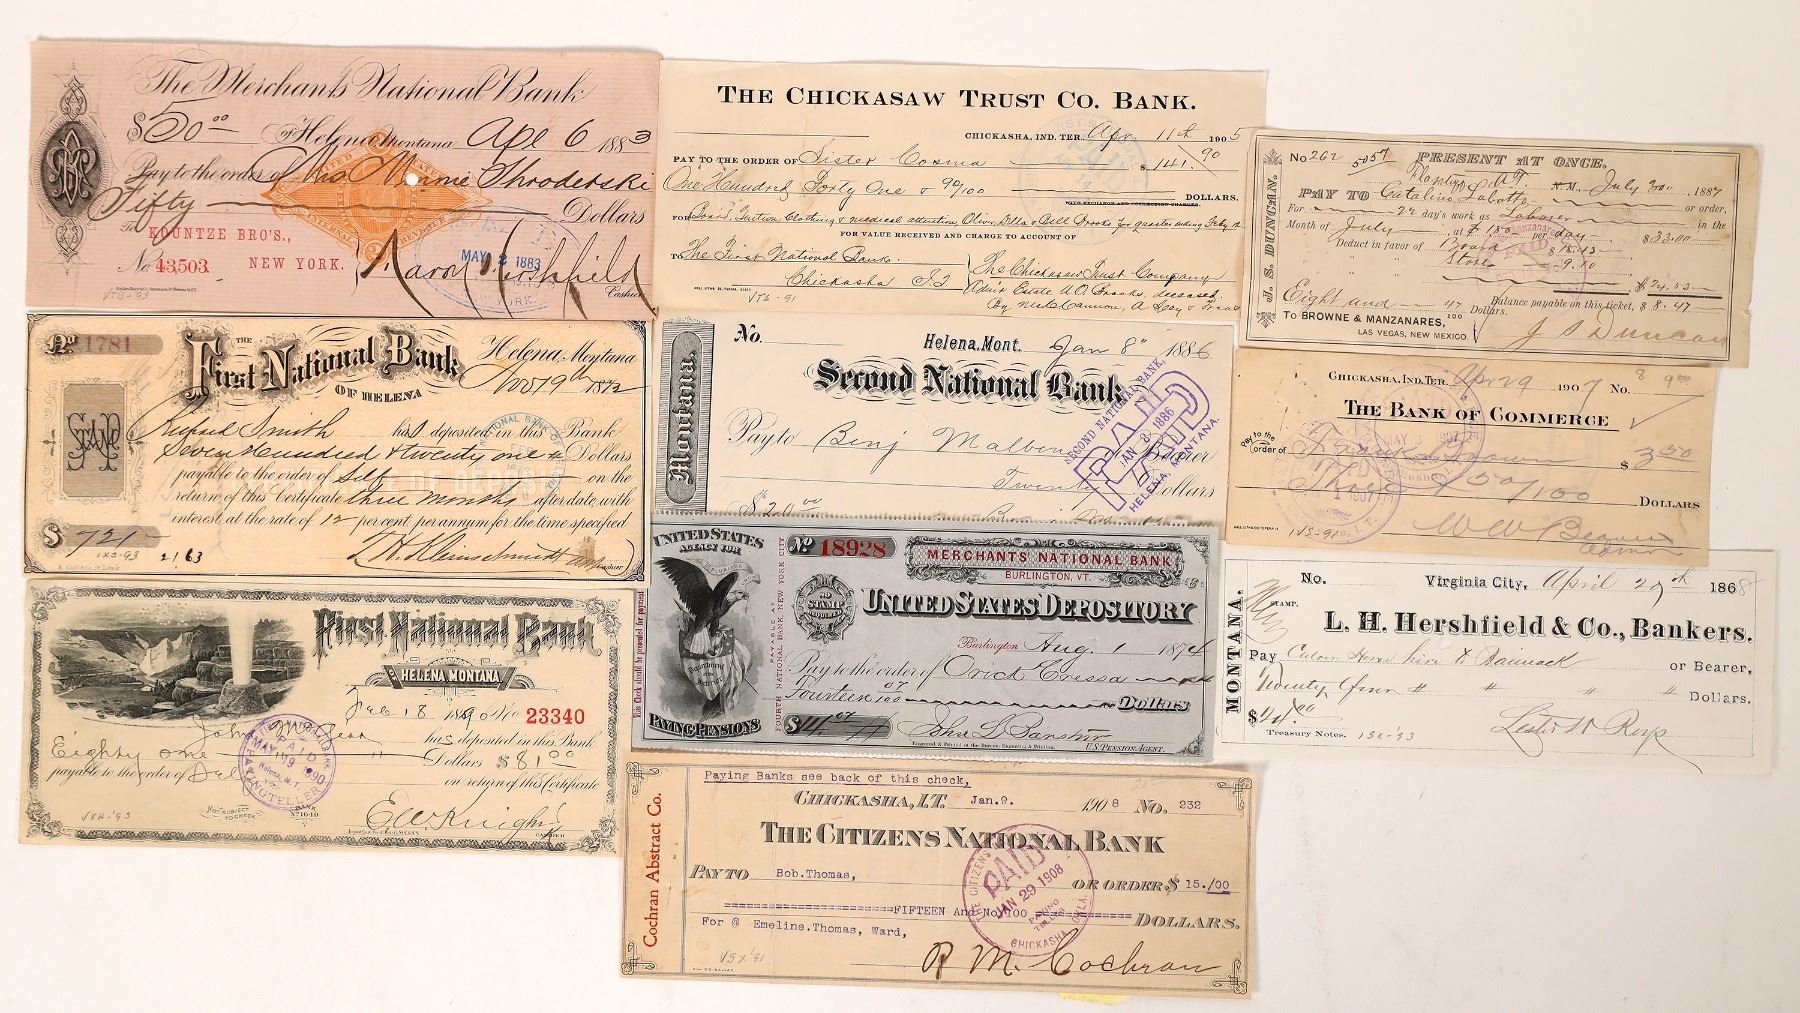 The Merchants National Bank
$50.00 of Helena, Montana Apl 6 1883
Pay to the order of Mrs Minnie Throderski
Fifty Dollars
To KOUNTZE BRO'S.,
No 43,503. NEW YORK.
MAY 2 1883
Aaron Hershfield
Cashier
VTB-93
THE CHICKASAW TRUST CO. BANK.
CHICKASHA, IND. TER. Apr. 11th 1905
PAY TO THE ORDER OF Sister Cosma $141.90
One Hundred Forty One & 90/100 DOLLARS.
WITH EXCHANGE AND COLLECTION CHARGES
FOR Board, Tuition, Clothing & medical attention
FOR VALUE RECEIVED AND CHARGE TO ACCOUNT OF
To The First National Bank. The Chickasaw Trust Company
Chickasha I.T.
VTS-91
No 262 5057 PRESENT AT ONCE.
N.M. July 30 1887
J. S. DUNCAN.
PAY TO Catalino Lobatto or order,
For 22 day's work as Laborer in the
Month of July at $1.50 per day $33.00
Deduct in favor of Board $15.43
Store 9.10
$24.53
Eight and 47/100 Dollars. Balance payable on this ticket, $8.47
To BROWNE & MANZANARES,
LAS VEGAS, NEW MEXICO
J S Duncan
No 1781 THE First National Bank
OF HELENA
Helena, Montana
Nov 19th 1872
Smith has deposited in this Bank
Seven Hundred & twenty one Dollars
payable to the order of Self on the
return of this Certificate three months after date, with
interest at the rate of 12 per cent. per annum for the time specified
$721 T. H. Kleinschmidt
Cashier
1XS-93 2163
No. Helena, Mont. Jan 8" 1886
Montana.
Second National Bank
Pay to Benj Malben or Bearer
Twenty Dollars
$20.00
SECOND NATIONAL BANK,
PAID
JAN 8 1886
HELENA, MONTANA.
CHICKASHA, IND. TER. Apr 29 1907 No. 8
9.00
THE BANK OF COMMERCE
Pay to the order of Frank Brown $3.50
Three & 50/100 DOLLARS
First National Bank
OF HELENA MONTANA
Feb 18 1890 No 23340
John has deposited in this Bank
Eighty one Dollars $81.00
payable to the order of Self on return of this Certificate
PAID
MAY 19 1890
Helena, M.T.
PAYING TELLER
NOT SUBJECT TO CHECK
BANK No 1649
E W Knight
CASHIER
VXH-'93
UNITED STATES
AGENCY FOR
PAYING PENSIONS
Department of the Interior
This Check should be presented for payment
PAYABLE AT
FOURTH NATIONAL BANK, NEW YORK CITY
No 18928 MERCHANTS' NATIONAL BANK
BURLINGTON, VT.
NO STAMP REQUIRED
UNITED STATES DEPOSITORY
Burlington Aug. 1 1874
Pay to the order of Orick Cressa
Fourteen 07/100 Dollars
$14.07
Engraved & Printed at the Bureau, Engraving & Printing. U.S. PENSION AGENT.
No. Virginia City, April 29th 1868
STAMP.
MONTANA.
L. H. Hershfield & Co., Bankers.
Pay or Bearer,
Twenty Four " " " " Dollars.
$24.00
Treasury Notes. 1SX-'93
Paying Banks see back of this check,
CHICKASHA, I.T. Jan.9. 1908 No. 232
Cochran Abstract Co.
THE CITIZENS NATIONAL BANK
PAY TO Bob.Thomas, OR ORDER, $ 15./00
FIFTEEN And No/100 DOLLARS.
For @ Emeline.Thomas, Ward,
PAID
JAN 29 1908
PAYING TELLER
CHICKASHA OKLA.
R M. Cochran
VSX'91